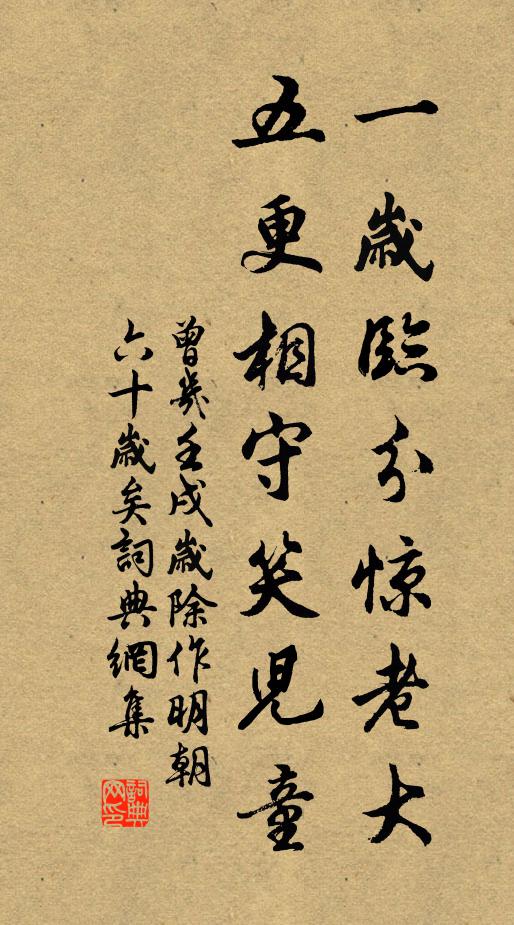 一歲臨分惊老大
五更相守笑兒童
曾幾壬戌歲除作明朝
六十歲矣詞典網集
詞典
网印